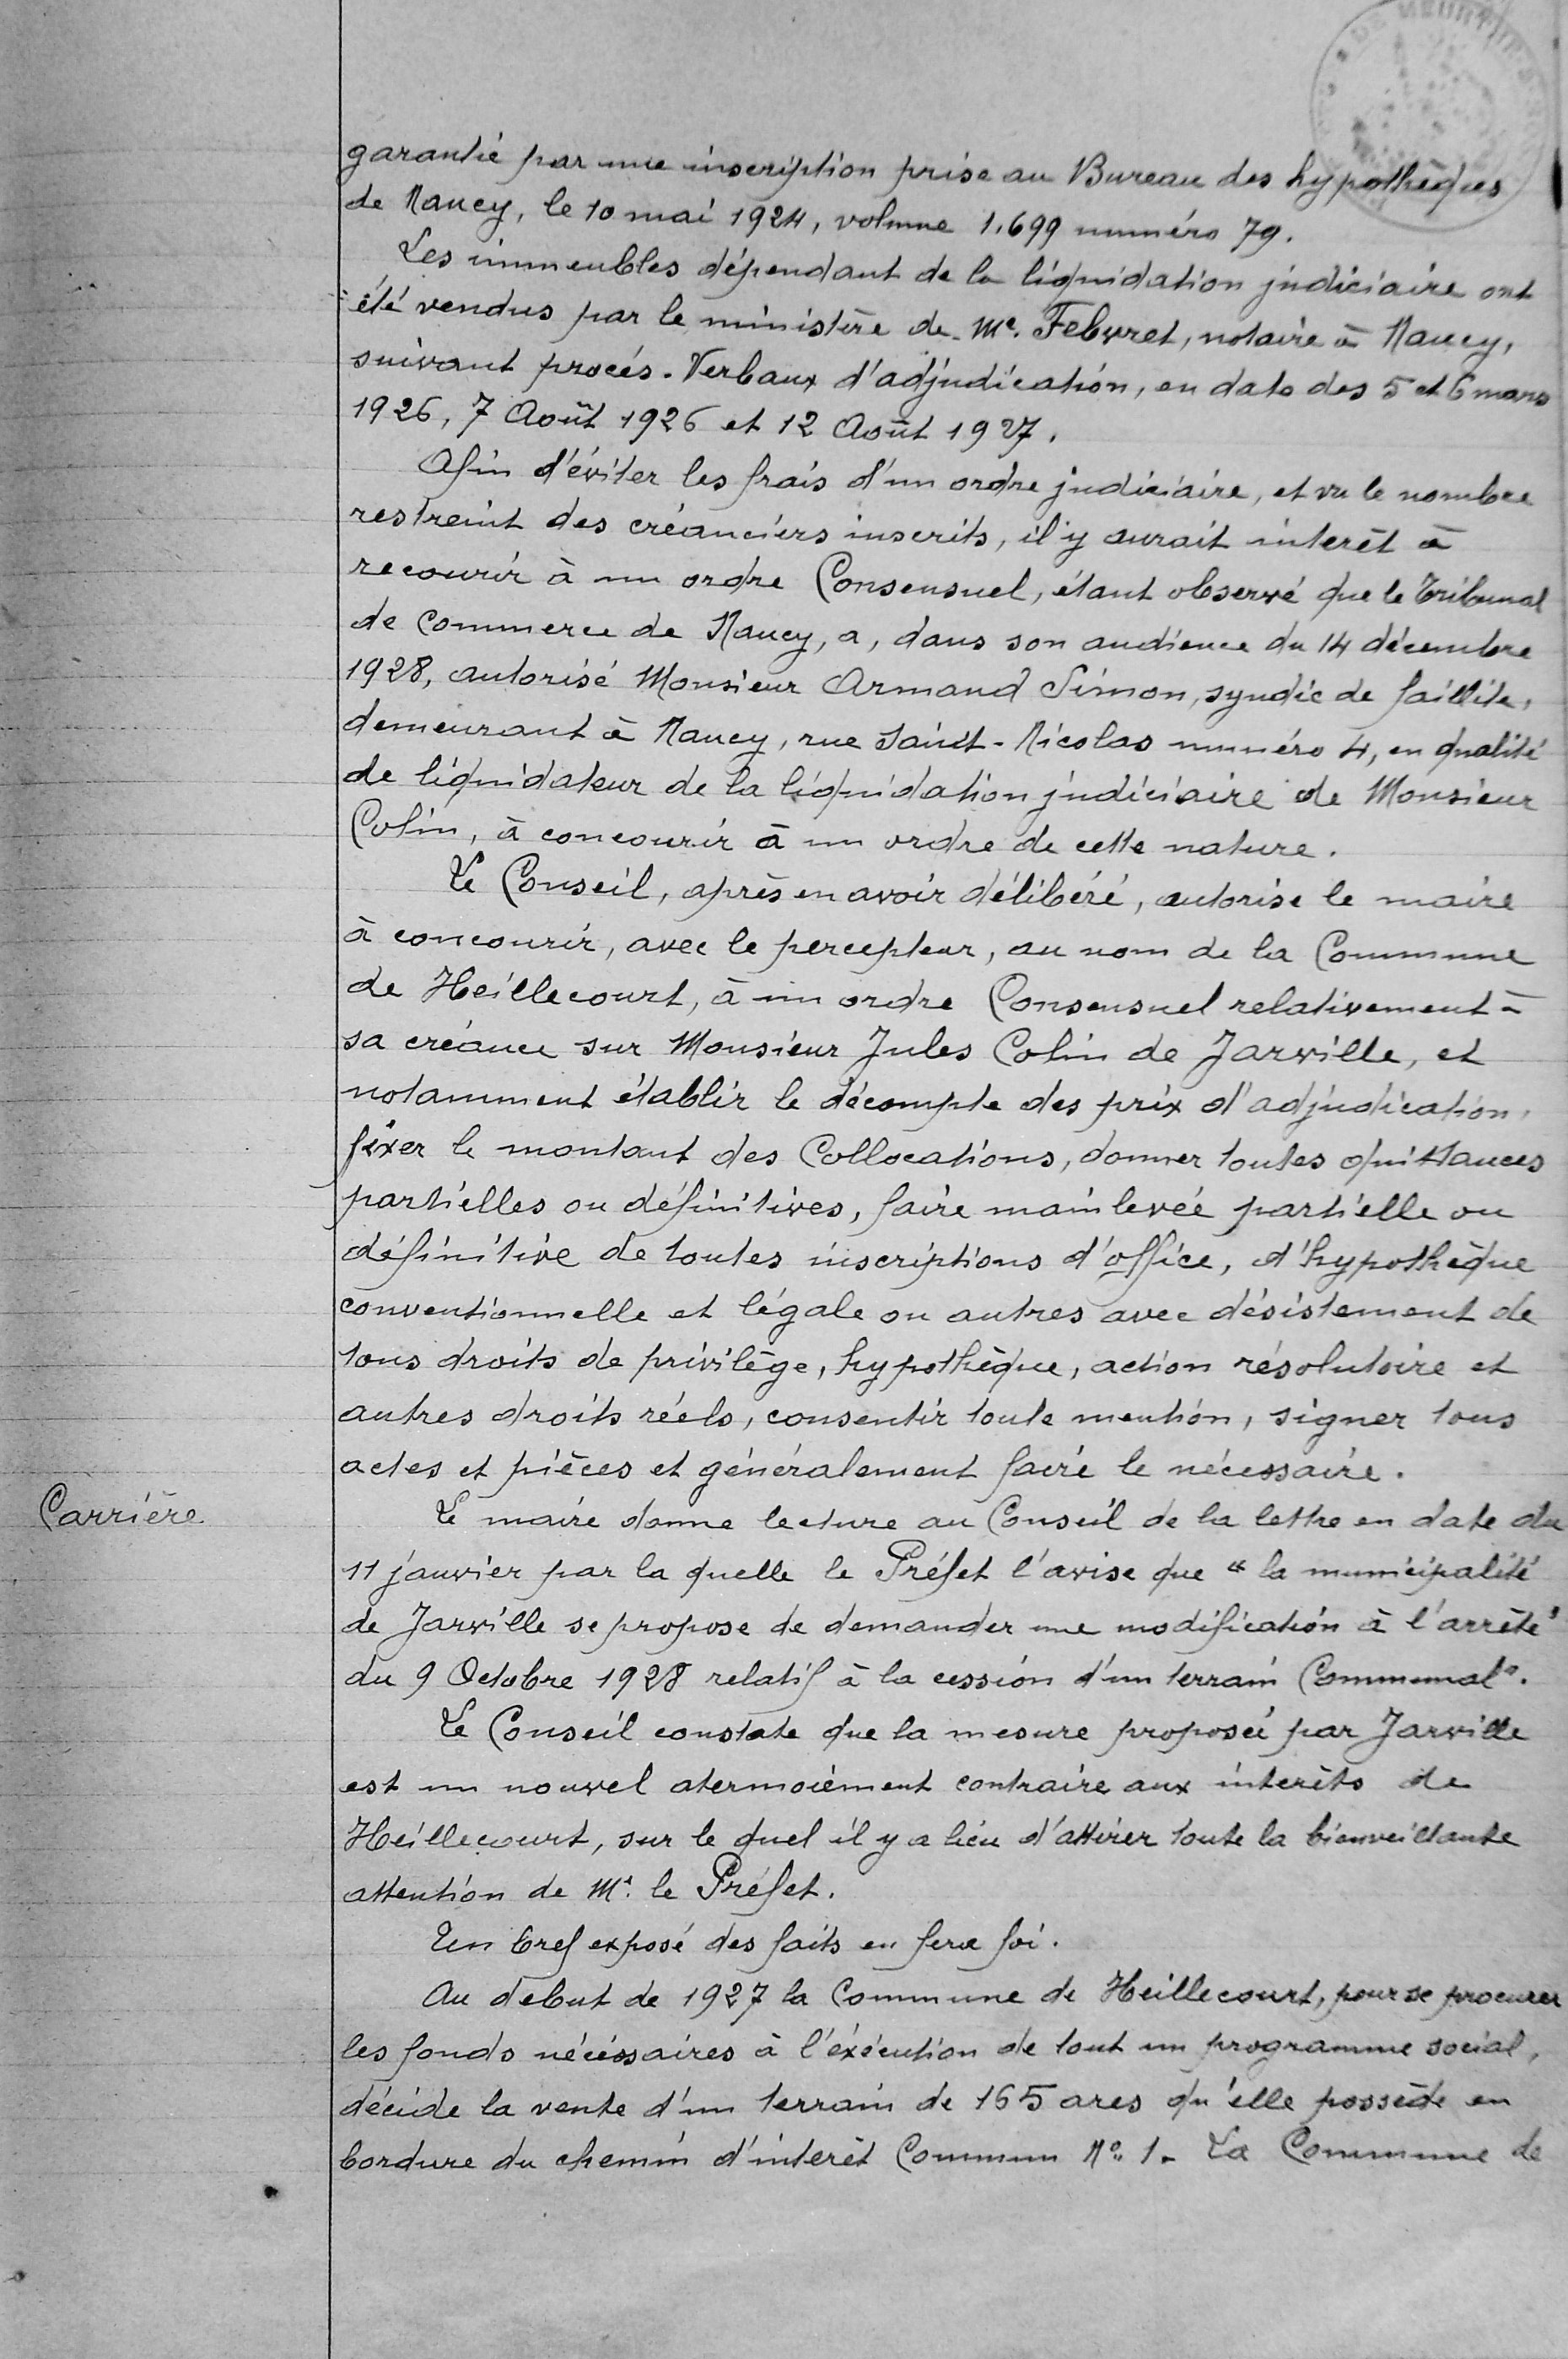 garantie par une inscription prise au Bureau des hypothèques
de Nancy, le 10 mai 1924, volume 1.699 numéro 79.
Les immeubles dépendant de la liquidation judiciaire ont
été vendus par le ministère de Me. Febvret, notaire à Nancy,
suivant procés-Verbaux d'adjudication, en date des 5 et 6 mars
1926, 7 Août 1926 et 12 Août 1927.
Afin d'éviter les frais d'un ordre judiciaire, et vu le nombre
restreint des créanciers inscrits, il y aurait interêt à
recourir à un ordre Consensuel, étant observé que le Tribunal
de Commerce de Nancy, a, dans son audience du 14 décembre
1928, autorisé Monsieur Armand Simon, syndic de faillite,
demeurant à Nancy, rue Saint-Nicolas numéro 4, en qualité
de liquidateur de la liquidation judiciaire de Monsieur
Colin, à concourir à un ordre de cette nature.
Le Conseil, après en avoir délibéré, autorise le maire
à concourir, avec le percepteur, au nom de la Commune
de Heillecourt, à un ordre Consensuel relativement à
sa créance sur Monsieur Jules Colin de Jarville, et
notamment établir le décompte des prix d'adjudication,
fixer le montant des Collocations, donner toutes quittances
partielles ou définitives, faire mainlevée partielle ou
définitive de toutes inscriptions d'office, d'hypothèque
conventionnelle et légale ou autres avec désistement de
tous droits de privilège, hypothèque, action résolutoire et
autres droits réels, consentir toute mention, signer tous
actes et pièces et généralement faire le nécessaire.
Carrière
Le maire donne lecture au Conseil de la lettre en date du
11 janvier par la quelle le Préfet l'avise que "la municipalité
de Jarville se propose de demander une modification à l'arrêté
du 9 Octobre 1928 relatif à la cession d'un terrain Communal".
Le Conseil constate que la mesure proposée par Jarville
est un nouvel atermoiement contraire aux interêts de
Heillecourt, sur le quel il y a lieu d'attirer toute la bienveillante
attention de Mr. le Préfet.
Un bref exposé des faits en fera foi.
Au debut de 1927 la Commune de Heillecourt, pour se procurer
les fonds nécéssaires à l'éxécution de tout un programme social,
décide la vente d'un terrain de 165 ares qu'elle possède en
bordure du chemin d'interêt Commun No. 1. La Commune de